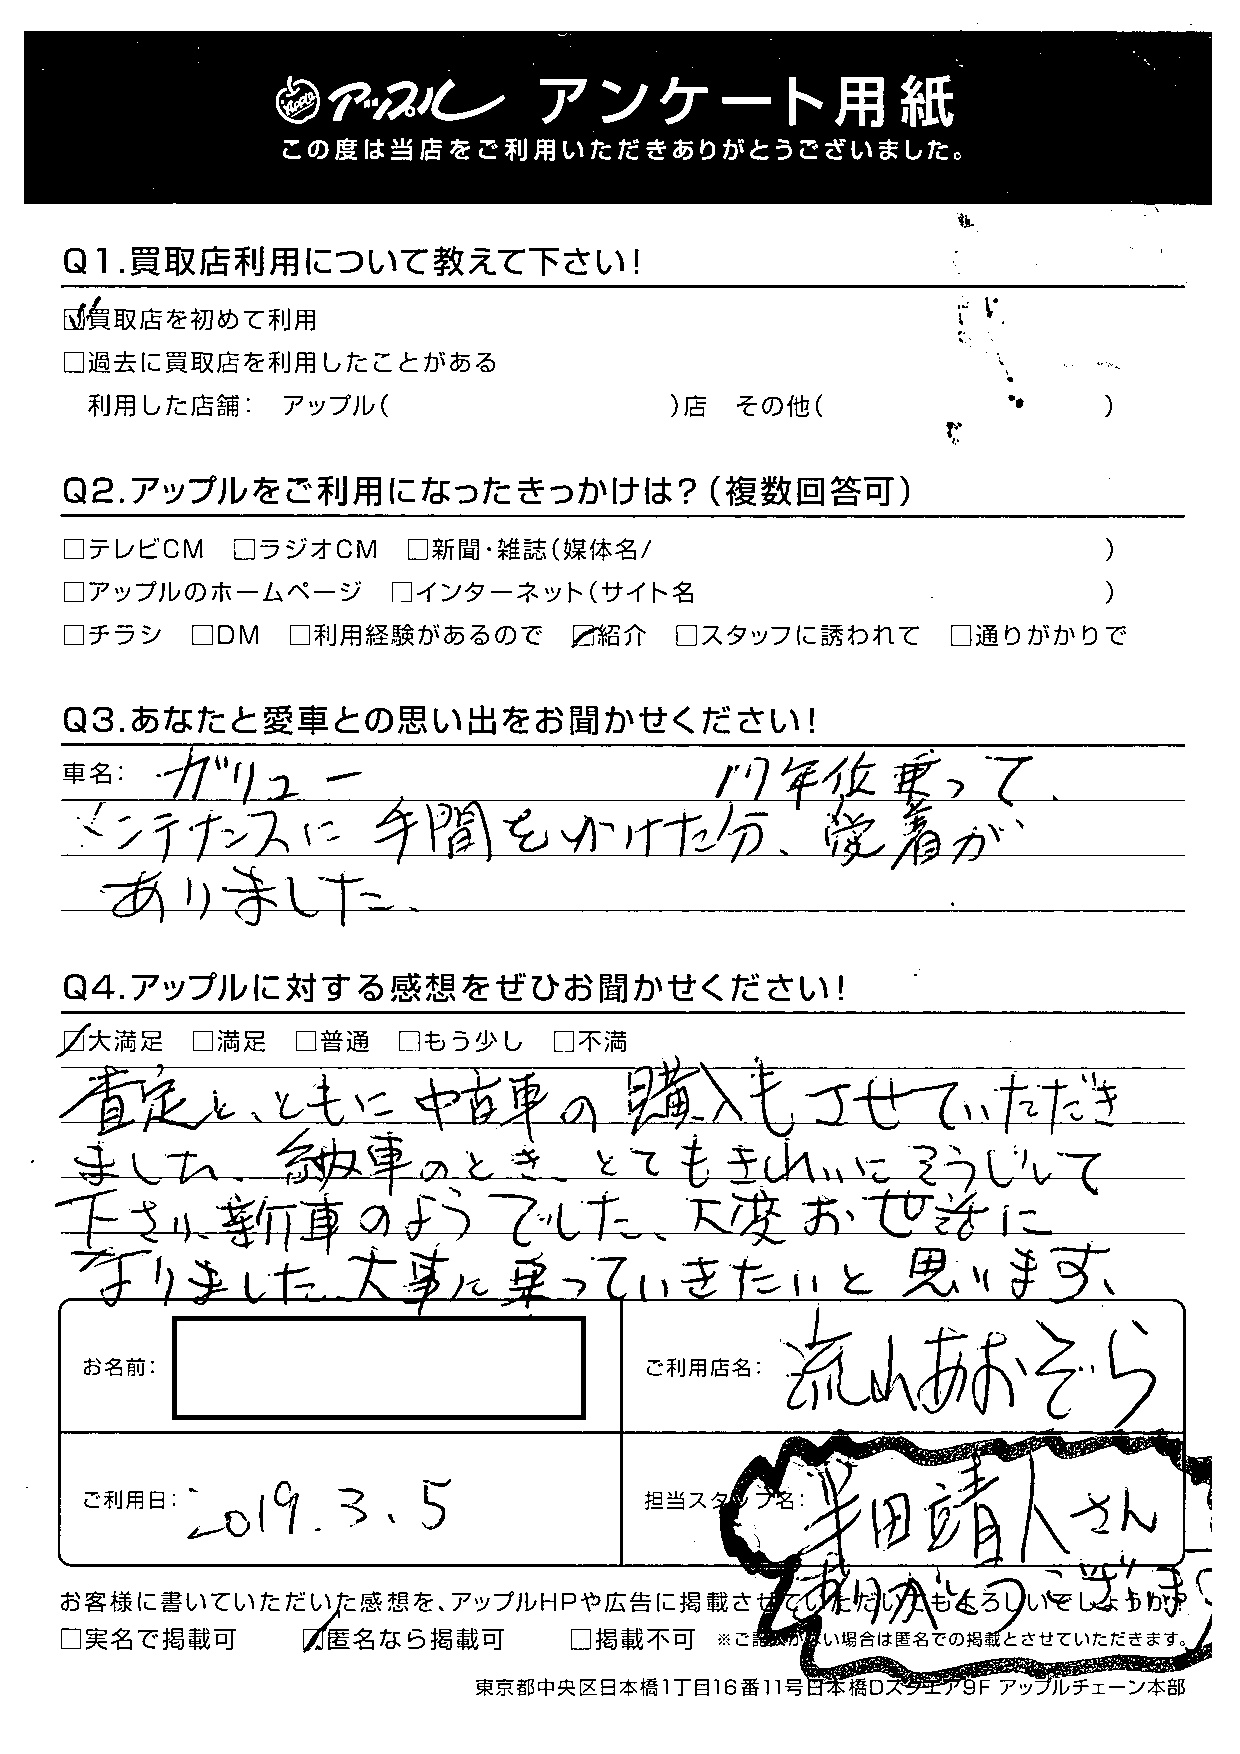 Apple アップル アンケート用紙
この度は当店をご利用いただきありがとうございました。
Q1.買取店利用について教えて下さい!
☑買取店を初めて利用
□過去に買取店を利用したことがある
利用した店舗: アップル( )店 その他( )
Q2.アップルをご利用になったきっかけは?(複数回答可)
□テレビCM □ラジオCM □新聞・雑誌(媒体名/ )
□アップルのホームページ □インターネット(サイト名 )
□チラシ □DM □利用経験があるので ☑紹介 □スタッフに誘われて □通りがかりで
Q3.あなたと愛車との思い出をお聞かせください!
車名: ガリュー 17年位乗って、
メンテナンスに手間をかけた分、愛着が
ありました、
Q4.アップルに対する感想をぜひお聞かせください!
☑大満足 □満足 □普通 □もう少し □不満
査定と、ともに中古車の購入もさせていただき
ました、納車のとき、とてもきれいにそうじして
下さり、新車のようでした、大変お世話に
なりました、大事に乗っていきたいと思います、
お名前: ご利用店名: 流山あおぞら
ご利用日: 2019.3.5 担当スタッフ名: 半田靖人さん
ありがとうございま
お客様に書いていただいた感想を、アップルHPや広告に掲載させていただいてもよろしいでしょうか?
□実名で掲載可 ☑匿名なら掲載可 □掲載不可 ※ご記入がない場合は匿名での掲載とさせていただきます。
東京都中央区日本橋1丁目16番11号日本橋Dスクエア9F アップルチェーン本部